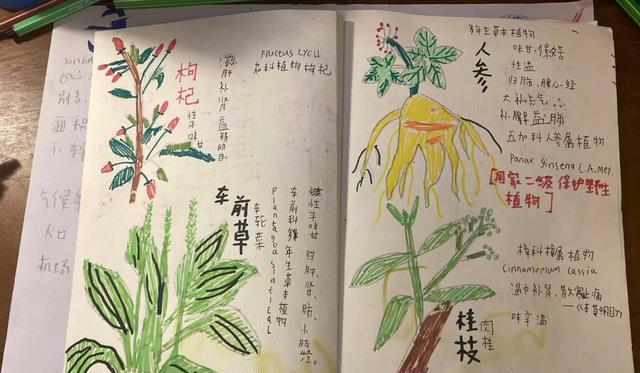 枸杞
性平味甘
滋肝补肾益精明目
Fructus LYCII
茄科植物枸杞
车前草
车轮菜
Plantago asiatica L
车前科多年生草本植物
性平味甘 归肝、肾、肺、小肠经。
人参
多年生草本植物
味甘、微苦
性温
归肺、脾、心经
大补元气
补脾益肺
五加科人参属植物
Panax ginseng C.A.Mey
[国家二级保护野性
植物]
桂枝
肉桂
樟科樟属植物
Cinnamomum cassia
温中补肾、散寒止痛
——《本草纲目》
味辛温
别名
面积
气候
人口
机场